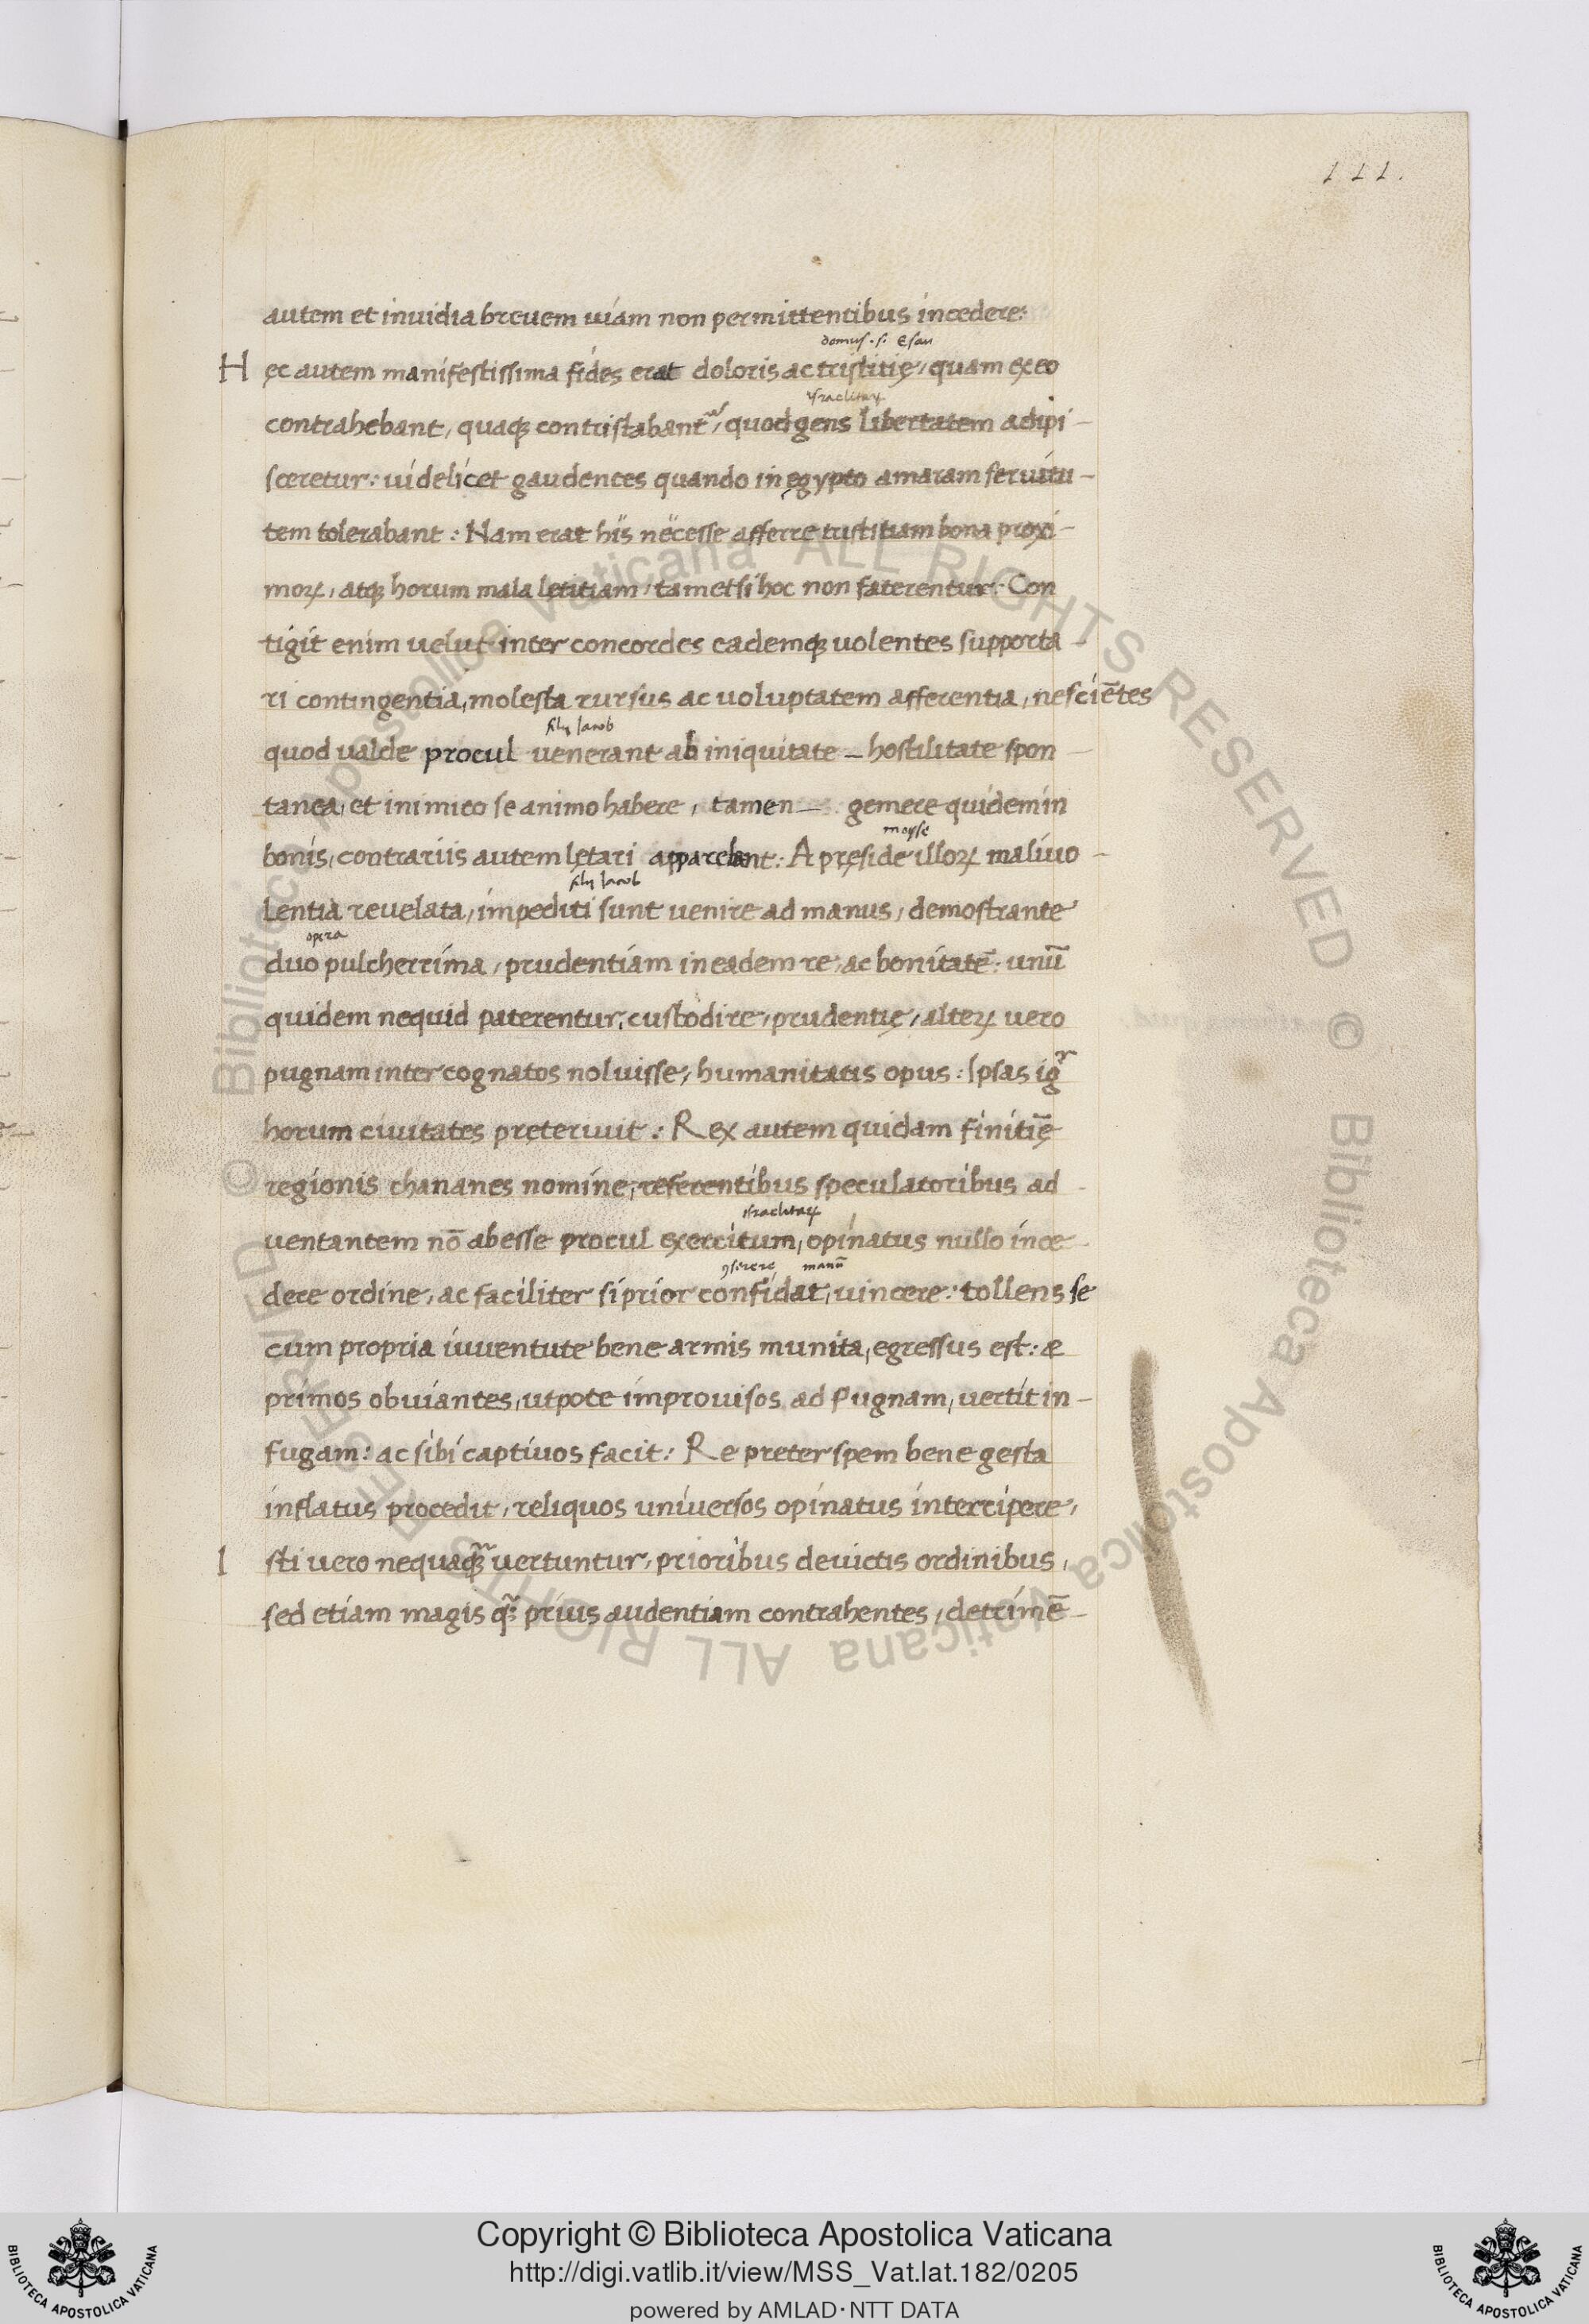 111.
autem et inuidia breuem uiam non permittentibus incedere:
domus .s. Esau
Hęc autem manifestissima fides erat doloris ac tristitię, quam ex eo
israelitaꝝ
contrahebant, quaqꝫ contristabantᵘʳ, quod gens libertatem adipi-
sceretur: uidelicet gaudentes quando in ęgypto amaram seruitu-
tem tolerabant: Nam erat his necesse afferre tristitiam bona proxi-
moꝝ, atqꝫ horum mala lętitiam, tametsi hoc non faterentur: Con
tigit enim uelut inter concordes eademqꝫ uolentes supporta-
ri contingentia, molesta rursus ac uoluptatem afferentia, nesciētes
filij Iacob
quod ualde procul uenerant ab iniquitate _ hostilitate spon-
tanea, et inimico se animo habere, tamen _ gemere quidem in
moyse
bonis, contrariis autem lętari apparebant: A pręside illoꝝ maliuo-
filij Iacob
lentia reuelata, impediti sunt uenire ad manus, demostrante
opera
duo pulcherrima, prudentiam in eadem re, ac bonitatē: unū
quidem nequid paterentur, custodire, prudentię, alteꝝ uero
pugnam inter cognatos noluisse, humanitatis opus: Ipsas igʳ
horum ciuitates pręteriuit: Rex autem quidam finitīę
regionis chananes nomine, referentibus speculatoribus ad
israelitaꝝ
uentantem nō abesse procul exercitum, opinatus nullo ince
ꝯserere manū
dere ordine, ac faciliter si prior confidat, uincere: tollens se
cum propria iuuentute bene armis munita, egressus est: &
primos obuiantes, utpote improuisos ad Pugnam, uertit in-
fugam: ac sibi captiuos facit: Re preter spem bene gesta
inflatus procedit, reliquos uniuersos opinatus intercipere,
Isti uero nequaqꝫ uertuntur, prioribus deuictis ordinibus,
sed etiam magis qꝫ̃ prius audentiam contrahentes, detrimē-
© Biblioteca Apostolica Vaticana ALL RIGHTS RESERVED © Biblioteca Apostolica Vaticana ALL RIGHTS RESERVED
BIBLIOTECA APOSTOLICA VATICANA
Copyright © Biblioteca Apostolica Vaticana
http://digi.vatlib.it/view/MSS_Vat.lat.182/0205
powered by AMLAD·NTT DATA
BIBLIOTECA APOSTOLICA VATICANA